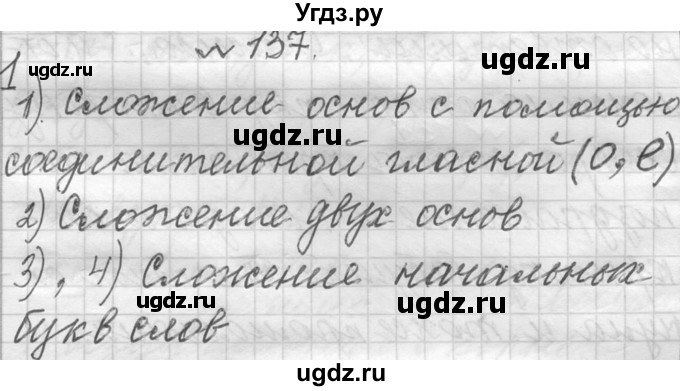 Угдз.ру
№ 137.
ugdz.ru ugdz.ru
1
1) Сложение основ с помощью
ugdz.ru
соединительной гласной (о, е)
ugdz.ru ugdz.ru
2) Сложение двух основ
ugdz.ru
3), 4) Сложение начальных
ugdz.ru ugdz.ru
букв слов
ugdz.ru